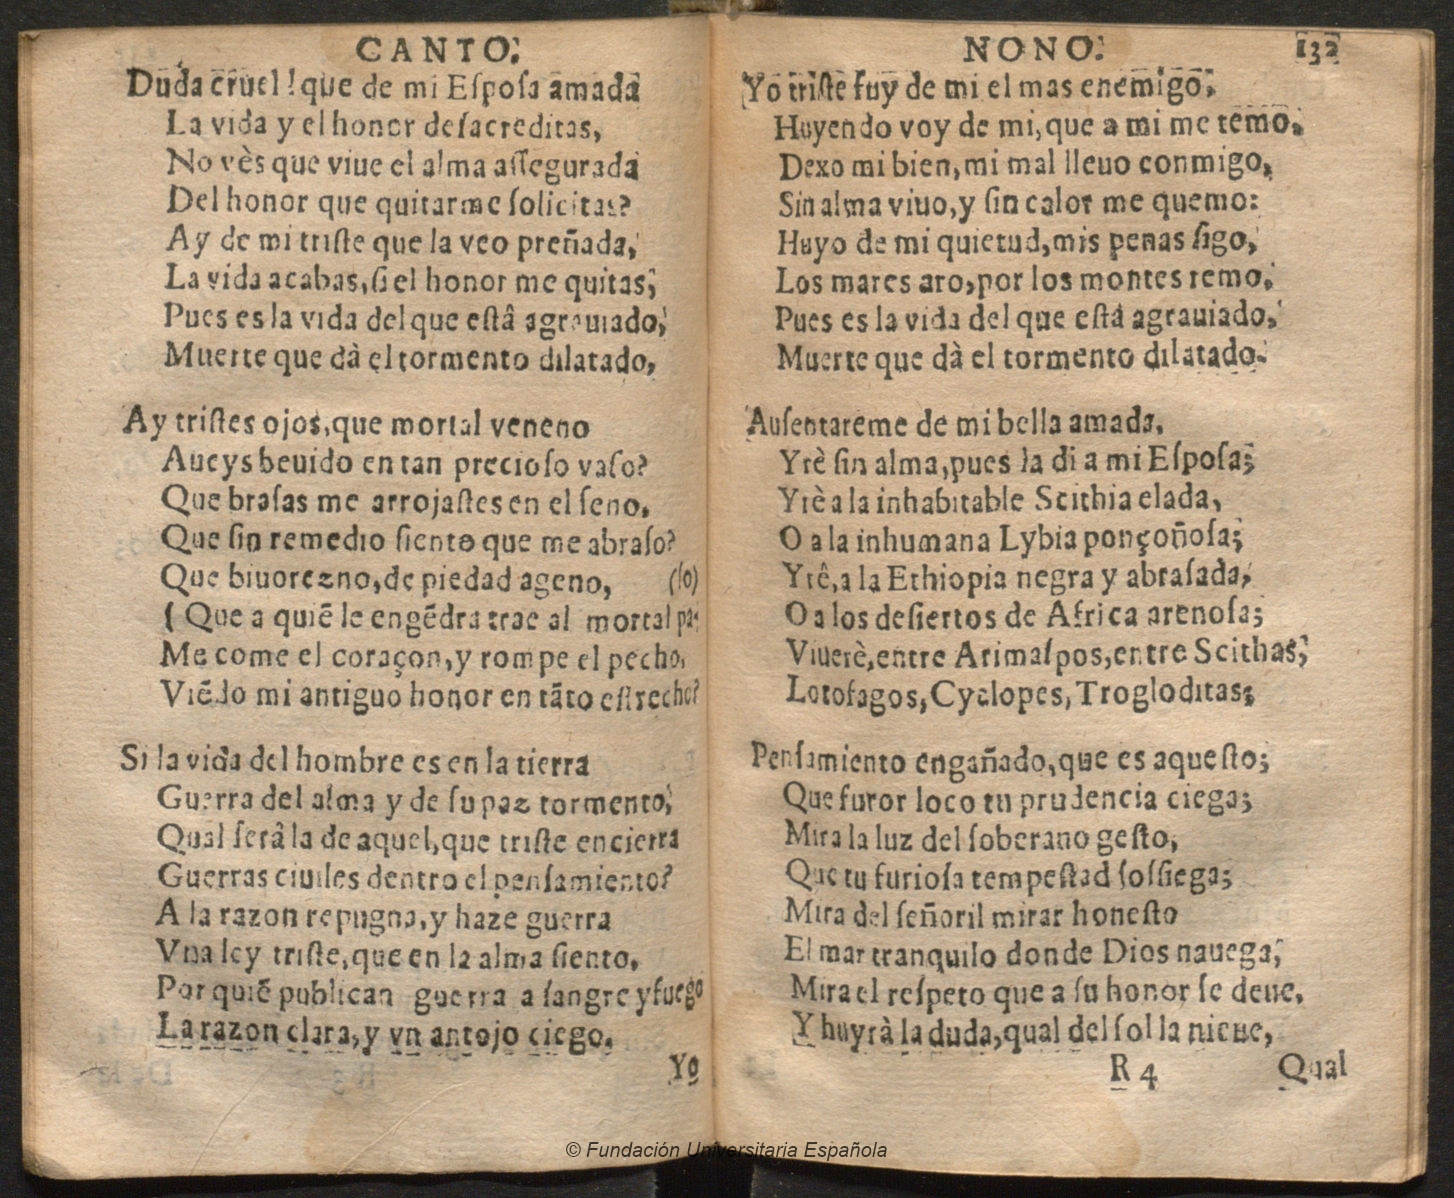 CANTO.
Duda cruel! que de mi Eſpoſa amada
La vida y el honor deſacreditas,
No vès que viue el alma aſſegurada
Del honor que quitarme ſolicitas?
Ay de mi triſte que la veo preñada,
La vida acabas, ſi el honor me quitas,
Pues es la vida del que eſtâ agrauiado,
Muerte que dà el tormento dilatado,
Ay triſtes ojos, que mortal veneno
Aueys beuido en tan precioſo vaſo?
Que braſas me arrojaſtes en el ſeno,
Que ſin remedio ſiento que me abraſo?
Que biuorezno, de piedad ageno, (ſo)
(Que a quiẽ le engẽdra trae al mortal pa-
Me come el coraçon, y rompe el pecho,
Viẽdo mi antiguo honor en tãto eſtrecho?
Si la vida del hombre es en la tierra
Guerra del alma y de ſu paz tormento,
Qual ſerâ la de aquel, que triſte encierra
Guerras ciuiles dentro el penſamiento?
A la razon repugna, y haze guerra
Vna ley triſte, que en la alma ſiento,
Por quiẽ publican guerra a ſangre y fuego
La razon clara, y vn antojo ciego.
Yo
NONO. 132
Yo triſte fuy de mi el mas enemigo,
Huyendo voy de mi, que a mi me temo,
Dexo mi bien, mi mal lleuo conmigo,
Sin alma viuo, y ſin calor me quemo:
Huyo de mi quietud, mis penas ſigo,
Los mares aro, por los montes remo,
Pues es la vida del que eſtá agrauiado,
Muerte que dà el tormento dilatado.
Auſentareme de mi bella amada,
Yrè ſin alma, pues la di a mi Eſpoſa;
Yrè a la inhabitable Scithia elada,
O a la inhumana Lybia ponçoñoſa;
Yrê, a la Ethiopia negra y abraſada,
O a los deſiertos de Africa arenoſa;
Viuerè, entre Arimaſpos, entre Scithas,
Lotofagos, Cyclopes, Trogloditas;
Penſamiento engañado, que es aqueſto;
Que furor loco tu prudencia ciega;
Mira la luz del ſoberano geſto,
Que tu furioſa tempeſtad ſoſsiega;
Mira del ſeñoril mirar honeſto
El mar tranquilo donde Dios nauega;
Mira el reſpeto que a ſu honor ſe deue,
Y huyrà la duda, qual del ſol la nieue,
R 4 Qual
© Fundación Universitaria Española